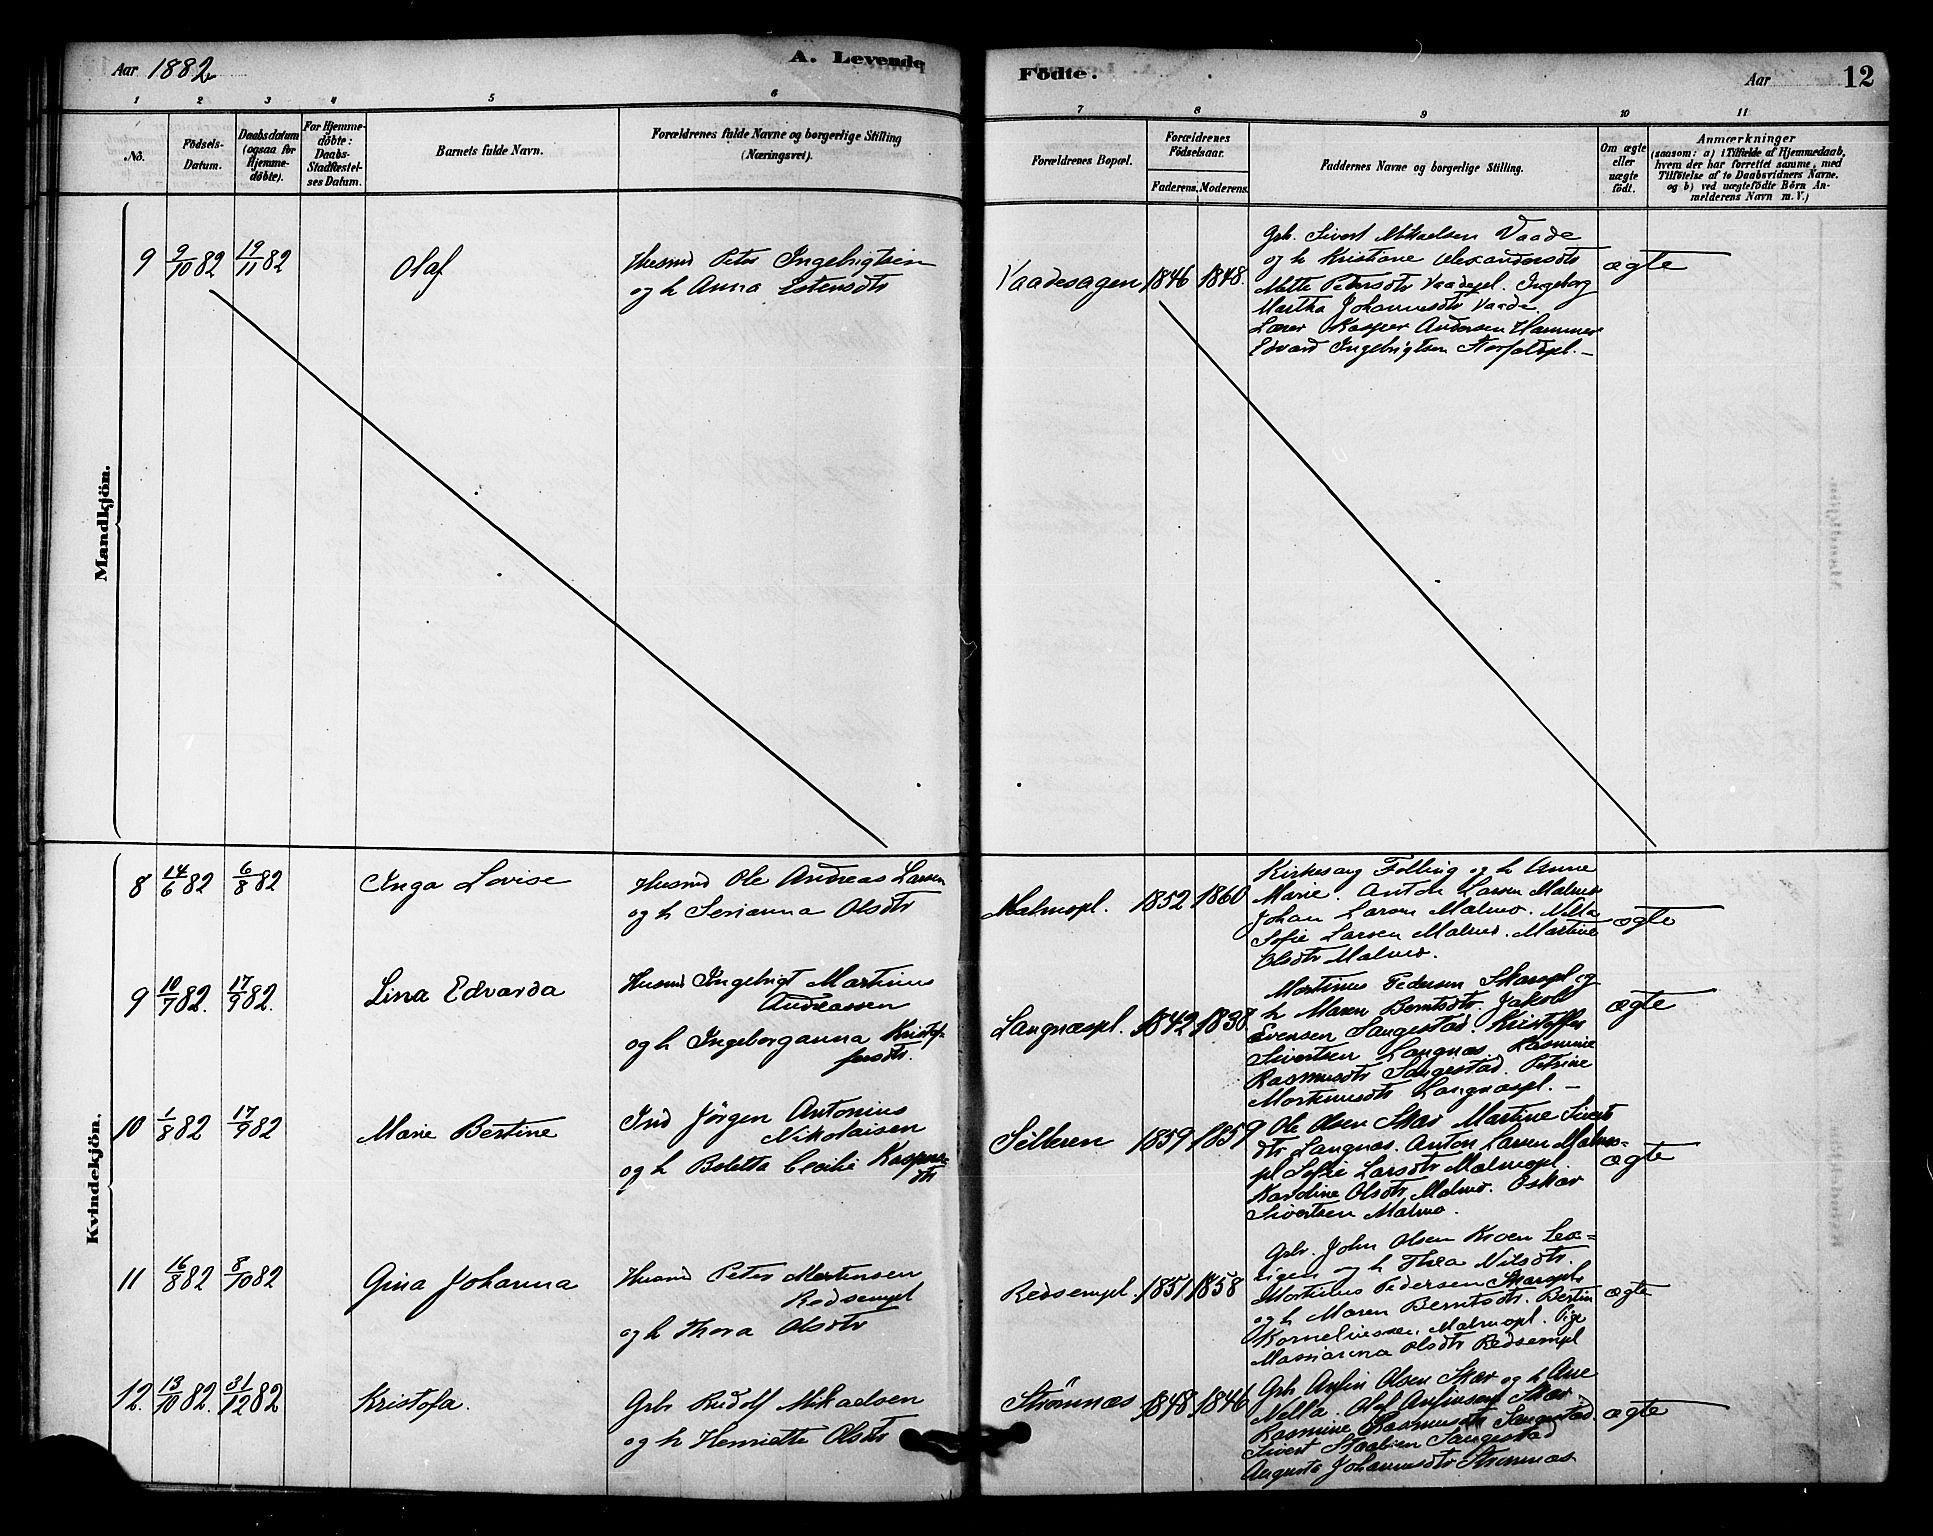 Aar 1882
A. Levende
Födte.
Aar
12
1 2 3 4 5 6 7 8 9 10 11
No.
Födsels-Datum.
Daabsdatum (ogsaa for Hjemmedöbte).
For Hjemmedöbte: Daabs-Stadfæstelses Datum.
Barnets fulde Navn.
Forældrenes fulde Navne og borgerlige Stilling (Næringsvei).
Forældrenes Bopæl.
Forældrenes Födselsaar.
Faderens. Moderens.
Faddernes Navne og borgerlige Stilling.
Om ægte eller uægte födt.
Anmærkninger
(saasom: a) i Tilfælde af Hjemmedaab, hvem der har forrettet samme, med Tilföielse af to Daabsvidners Navne. og b) ved uægtefödte Börn Anmelderens Navn m.V.)
Mandkjön.
9 9/10 82 19/11 82 Olaf
Husmd Peter Ingebrigtsen
og h Anna Estensdtr
Vaadesagen 1846 1848.
Grb. Sivert Mikaelsen Vaade
og h Kristiane Alexandersdtr
Mette Petersdtr Vaadepl. Ingeborg
Martha Johannesdtr Vaade.
Lærer Kasper Andersen Hammer
Edvard Ingebrigtsen
ægte
Kvindekjön.
8 14/6 82 6/8 82 Inga Lovise
Husmd Ole Andreas Larsen
og h Serianna Olsdtr
Malmopl. 1852 1860
Kirkesang Folling og h Anne
Marie. Anton Larsen Malmo
Johan Larsen Malmo. Nella
Sofie Larsen Malmo. Martine
Olsdtr Malmo.
ægte
9 10/7 82. 17/9 82. Lina Edvarda
Husmd Ingebrigt Martinus
Andreassen
og h Ingeborganna Kristof-
fersdtr.
Langnæspl. 1842 1838
Mortinus Pedersen Skarpl og
h Maren Berntsdtr. Jakob
Evensen Sangestad. Kristoffer
Sivertsen Langnæs. Rasmine
Rasmusdtr Sangestad. Petrine
Mortinusdtr Langnæspl. -
ægte
10 1/8 82 17/9 82 Marie Bertine
Ind Jörgen Antonius
Nikolaisen
og h Boletta Cecilie Kaspers-
dtr
Selleren 1859 1859
Ole Olsen Skar Martine Siverts
dtr Langnæs. Anton Larsen Malmo-
pl Sofie Larsdtr Malmopl.
Karoline Olsdtr Malmo. Oskar
Sivertsen Malmo.
ægte
11 16/8 82 8/10 82 Gina Johanna
Husmd Peter Mortensen
Redsempl
og h Thora Olsdtr
Redsempl. 1851 1858
Grb. John Olsen Kroen
og h Thea Nilsdtr.
Mortinus Pedersen Skarpl.
og h Maren Berntsdtr. Bertin
Korneliussen Malmopl. Pige
Massianna Olsdtr Redsempl
ægte
12. 13/10 82. 31/12 82 Kristofa.
Grb Rudolf Mikaelsen
og h Henriette Olsdtr
Strömnæs 1848 1846
Grb Anfin Olsen Skar og h Ane
Nella. Olaf Anfinsen Skar
Rasmine Rasmusdtr Sangestad.
Sivert Sangestad
Augusta Johannesdtr Strömnæs
ægte